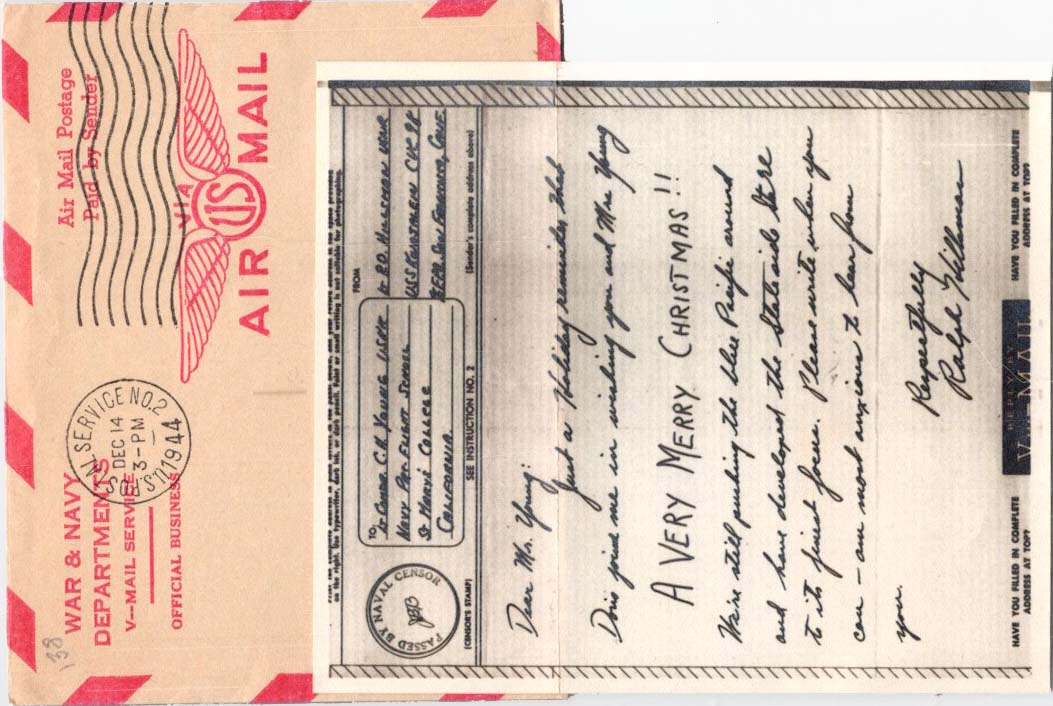 WAR & NAVY
DEPARTMENTS
V--MAIL SERVICE
OFFICIAL BUSINESS
138
U.S. POSTAL SERVICE NO. 2
DEC 14
3-PM
1944
Air Mail Postage
Paid by Sender
VIA
US
AIR MAIL
on the right. Use typewriter, dark ink, or dark pencil. Faint or small writing is not suitable for photographing.
PASSED BY NAVAL CENSOR
(CENSOR'S STAMP)
TO
Lt Comdr. C.R. Young USNR
Navy Pre-Flight School
St Mary's College
California
SEE INSTRUCTION NO. 2
FROM
USNR
USS
San Francisco, Calif
(Sender's complete address above)
Dear Mr. Young:
Just a Holiday reminder that
Doris joins me in wishing you and Mrs Young
A VERY MERRY CHRISTMAS!!
We're still pushing the blue Pacific around
and have developed the Stateside Stare
to its finest focus. Please write when you
can - am most anxious to hear from
you.
Respectfully
Ralph
HAVE YOU FILLED IN COMPLETE
ADDRESS AT TOP?
REPLY BY
V···MAIL
HAVE YOU FILLED IN COMPLETE
ADDRESS AT TOP?